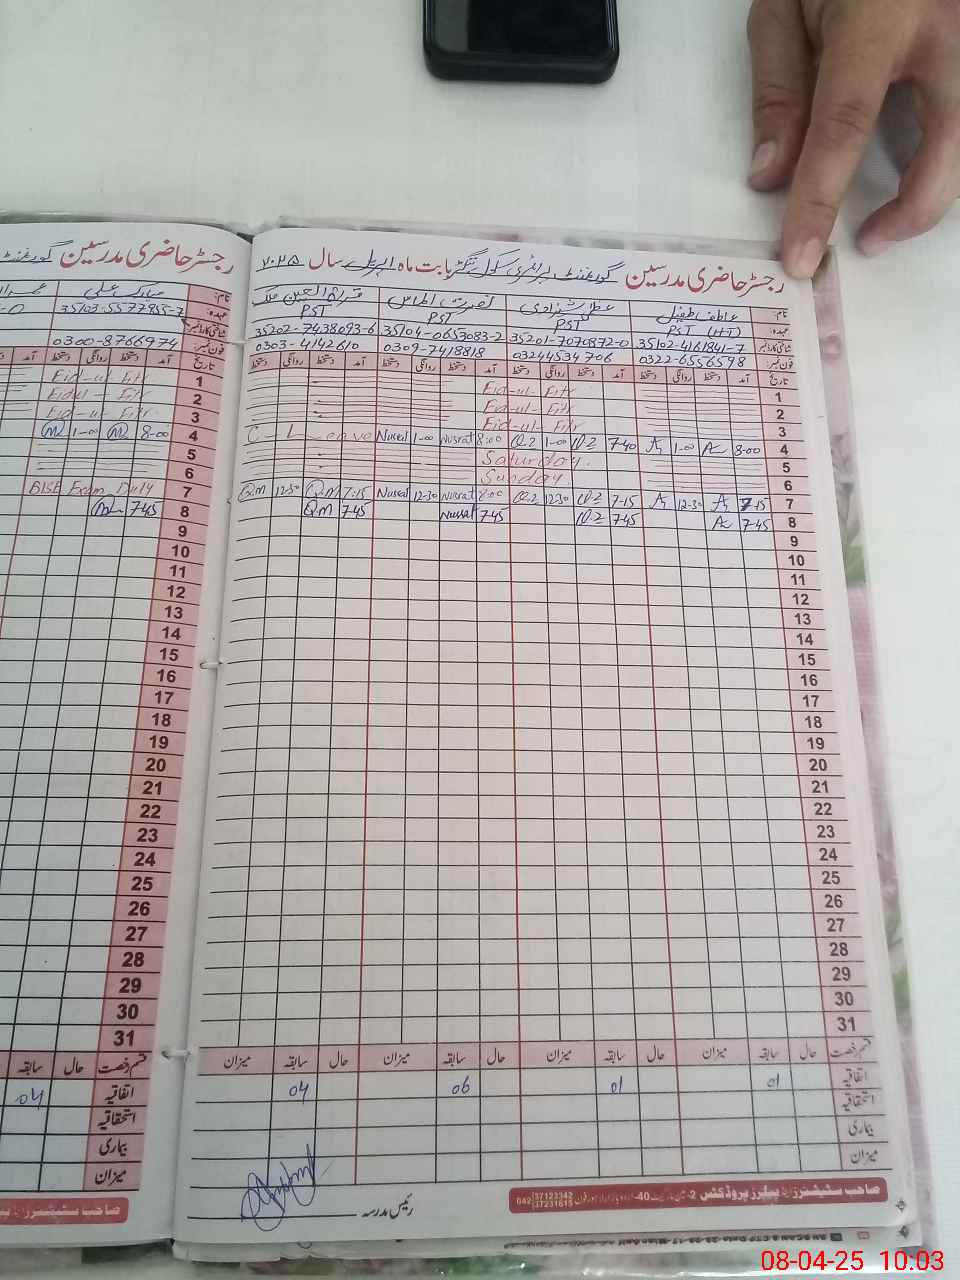 رجسٹر حاضری مدرسین گورنمنٹ پرائمری سکول بابت ماہ اپریل سال ۲۰۲۵
نام: عاطف طفیل عطا شہزادی نصرت الماس قراۃ العین ملک
عہدہ: PST (HT) PST PST PST
شناختی کارڈ نمبر 35102-4161841-7 35201-7070872-0 35104-0653083-2 35202-7438093-6
فون نمبر: 0322-6556598 03244534706 0309-7418818 0303-4142610
تاریخ آمد دستخط روانگی دستخط آمد دستخط روانگی دستخط آمد دستخط روانگی دستخط آمد دستخط روانگی دستخط
1 Eid-ul-Fitr
2 Eid-ul-Fitr
3 Eid-ul-Fitr
4 8-00 1-00 7-40 1-00 8:00 Nusrat 1-00 Nusrat C-Leave
5 Saturday.
6 Sunday
7 7-15 12-30 7-15 12-30 Nusrat 12-30 Nusrat 7-15 QM 12-30 QM
8 7-45 7-45 7-45 Nusrat 7-45 QM
9
10
11
12
13
14
15
16
17
18
19
20
21
22
23
24
25
26
27
28
29
30
31
قسم رخصت حال سابقہ میزان حال سابقہ میزان حال سابقہ میزان حال سابقہ میزان
اتفاقیہ 01 01 06 04
استحقاقیہ
بیماری
میزان
رئیس مدرسہ
صاحب سٹیشنرز پیپرز پروڈکٹس
042 37123342
37231615
رجسٹر حاضری مدرسین گورنمنٹ
نام: مبارک علی
عہدہ:
شناختی کارڈ نمبر 35103-5577955-7
فون نمبر: 0300-8766974
تاریخ آمد دستخط روانگی دستخط آمد
1 Eid-ul-Fitr
2 Eidul-Fitr
3 Eid-ul-Fitr
4 8-00 1-00
5
6
7 BISE Exam Duty
8 7-45
9
10
11
12
13
14
15
16
17
18
19
20
21
22
23
24
25
26
27
28
29
30
31
قسم رخصت حال سابقہ
اتفاقیہ 04
استحقاقیہ
بیماری
میزان
صاحب سٹیشنرز
08-04-25 10:03